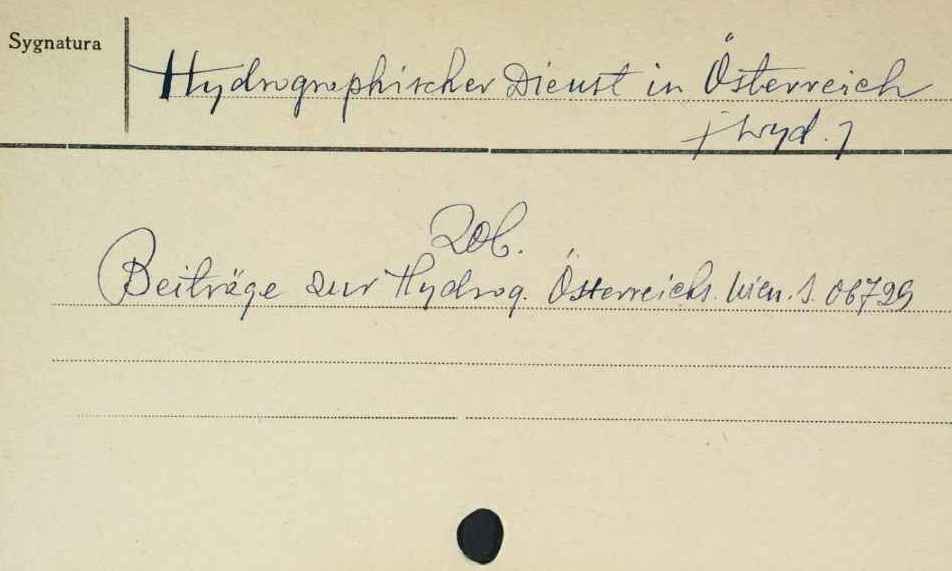 Sygnatura
Hydrographischer Dienst in Österreich
/wyd./
Zob.
Beiträge zur Hydrog. Österreichs. Wien. S. 06729